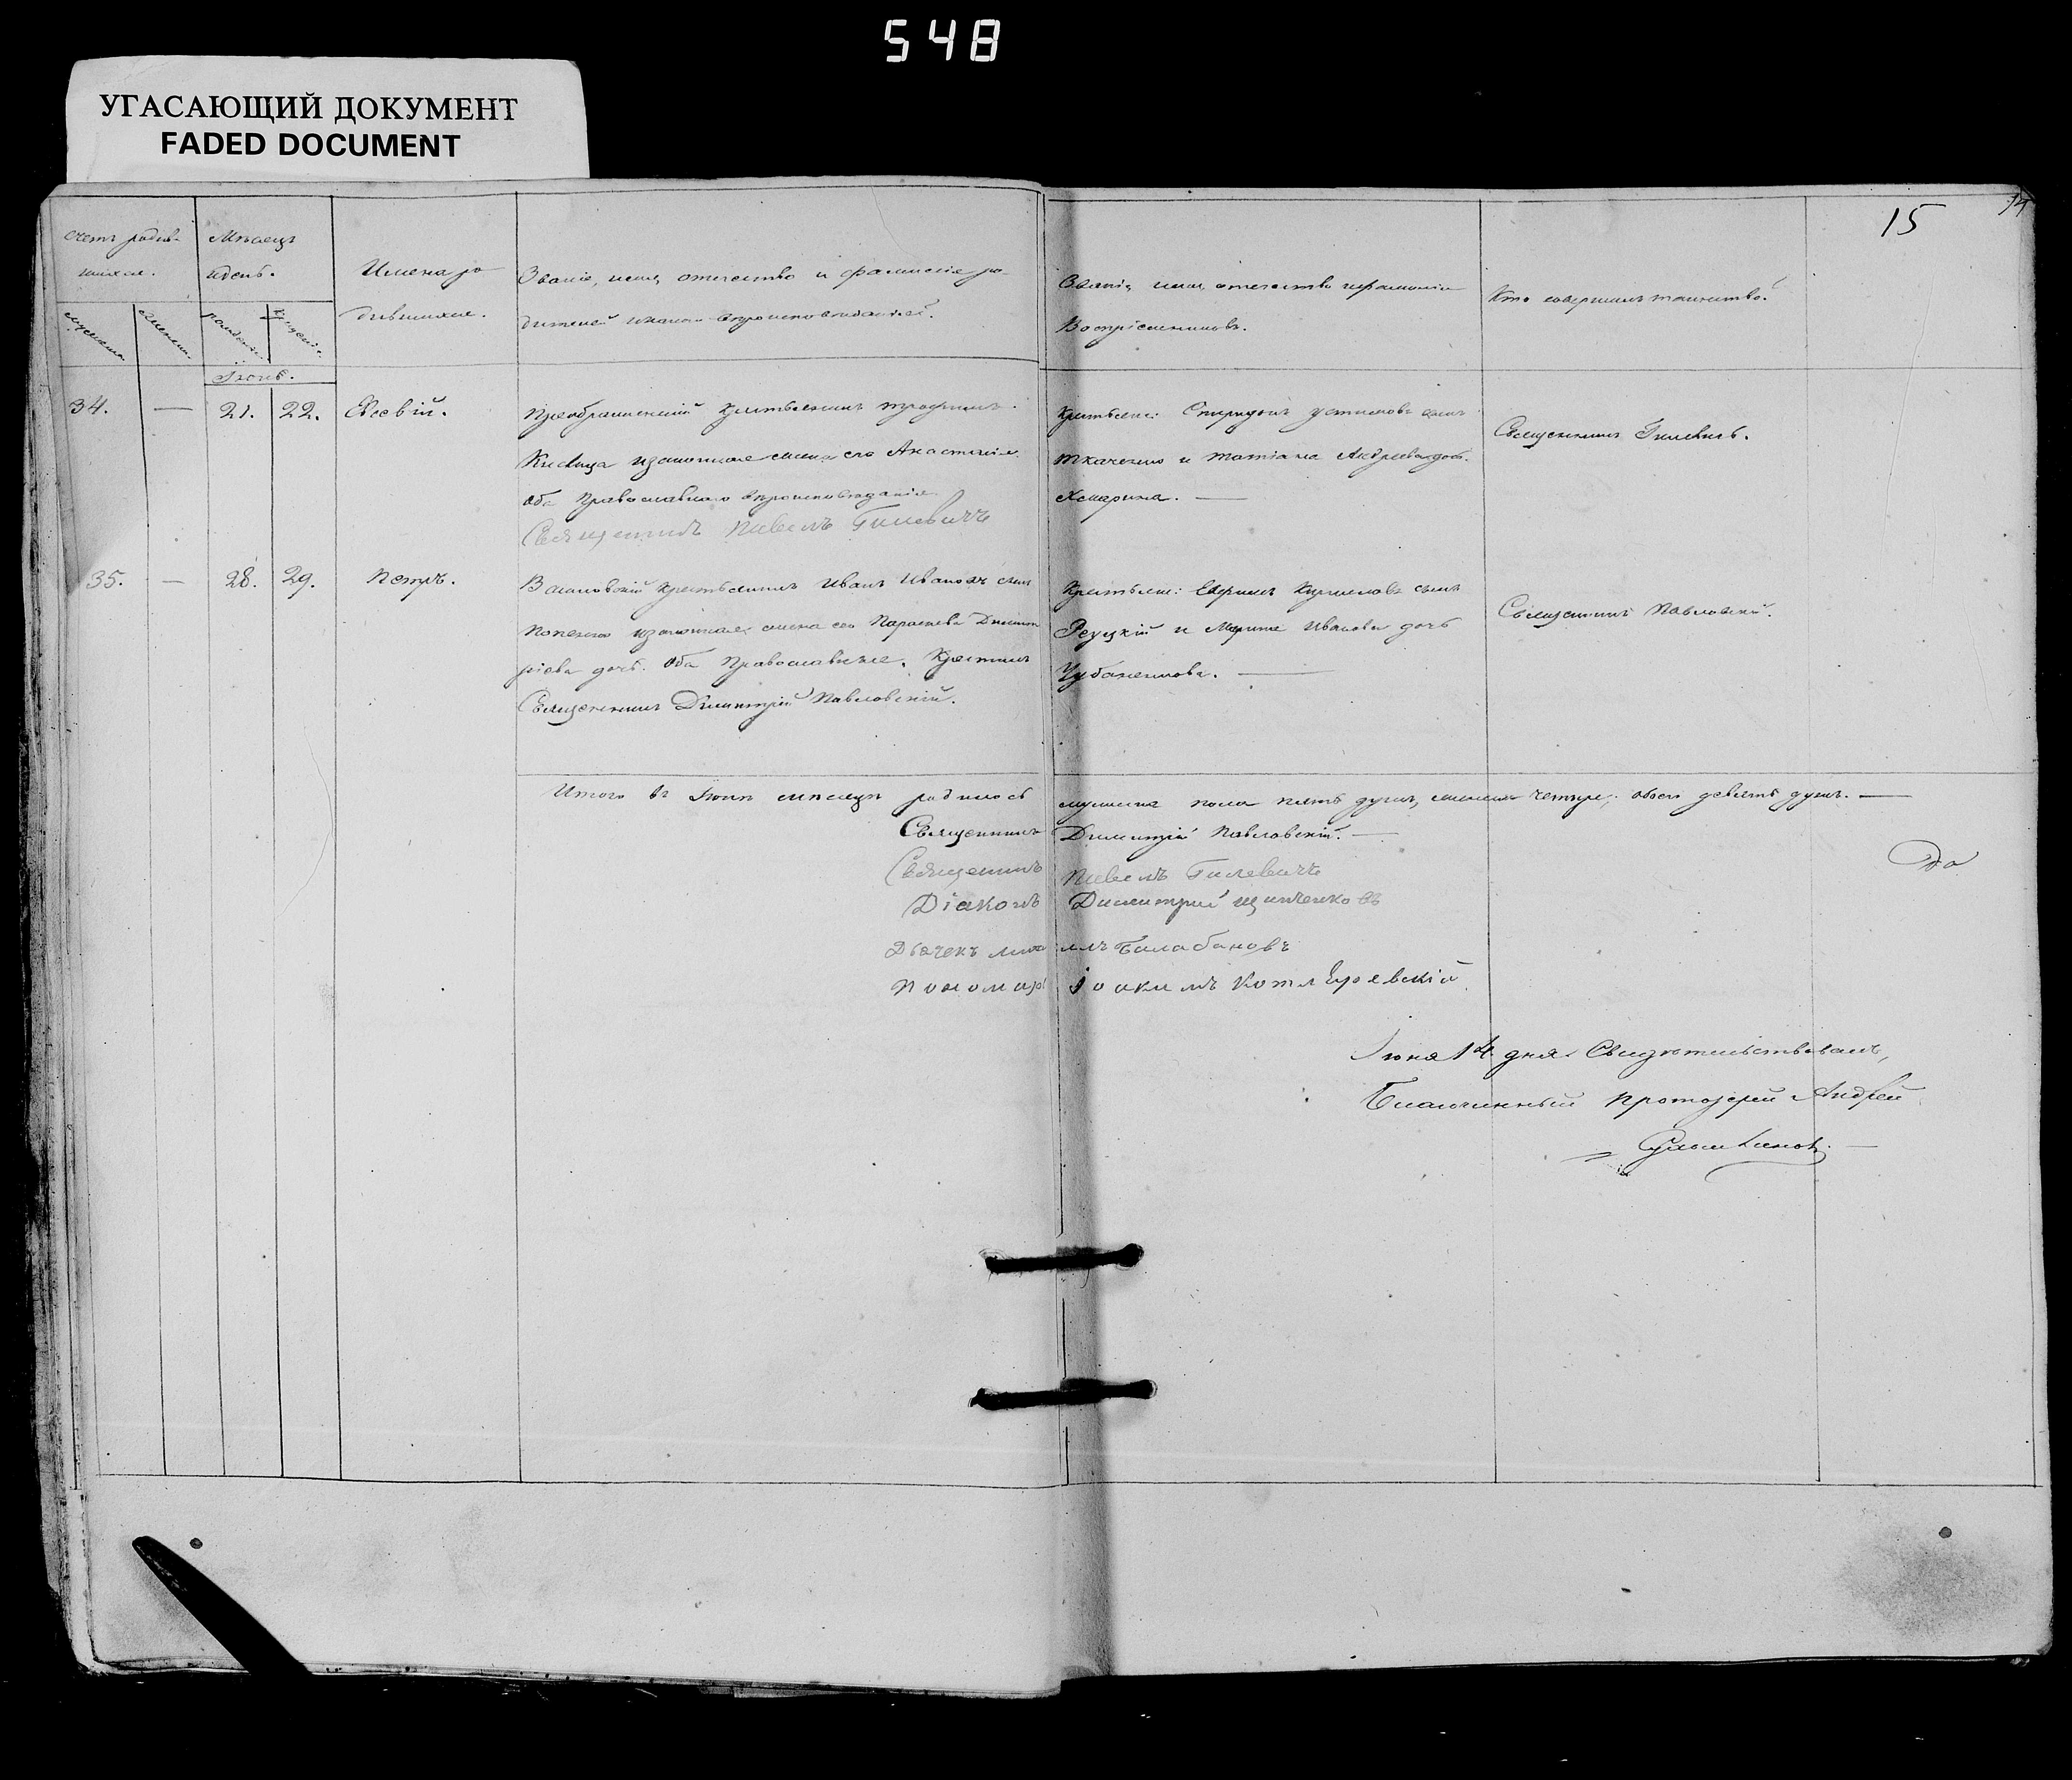 548
УГАСАЮЩИЙ ДОКУМЕНТ
FADED DOCUMENT
15
14
Счетъ родив-
шихся.
Мѣсяцъ
и день.
Имена ро
дившихся.
Званіе, имя, отечество и фамилія ро-
дителей и какого вѣроисповѣданія.
Званіе, имя, отечество и фамилія
Воспріемниковъ.
Кто совершалъ таинство.
Мужеска
Женска.
рожденія.
крещенія.
Іюнь.
34. — 21. 22. Евсевій.
Преображенскій крестьянинъ Трофимъ
законная жена его Анастасія
оба Православнаго вѣроисповѣданія
Священникъ Павелъ Гилевичъ
Крестьяне: Спиридонъ Устимовъ сынъ
Ткаченко и Татіана Андреева дочь
Хмарина. —
Священникъ Гилевичъ.
35. — 28. 29. Петръ.
крестьянинъ Иванъ Ивановъ сынъ
Попенко и законная жена его Параскева Димит
ріева дочь. Оба Православные. Крестилъ
Священникъ Димитрій Павловскій.
Крестьяне: Ефимъ сынъ
Реуцкій и Марина Иванова дочь
Чубаненкова. —
Священникъ Павловскій.
Итого въ Іюнѣ мѣсяцѣ родилось мужеска пола пять душъ, женска четыре, обоего девять душъ. —
Священникъ Димитрій Павловскій. —
Священникъ Павелъ Гилевичъ
До
Діаконъ Димитрий Щипченковъ
Дьячекъ Миха илъ Балабановъ
Пономарь Іоакимъ Котляревскій
Іюня 14 дня Свидѣтельствовалъ,
Благочинный Протоіерей Андрей